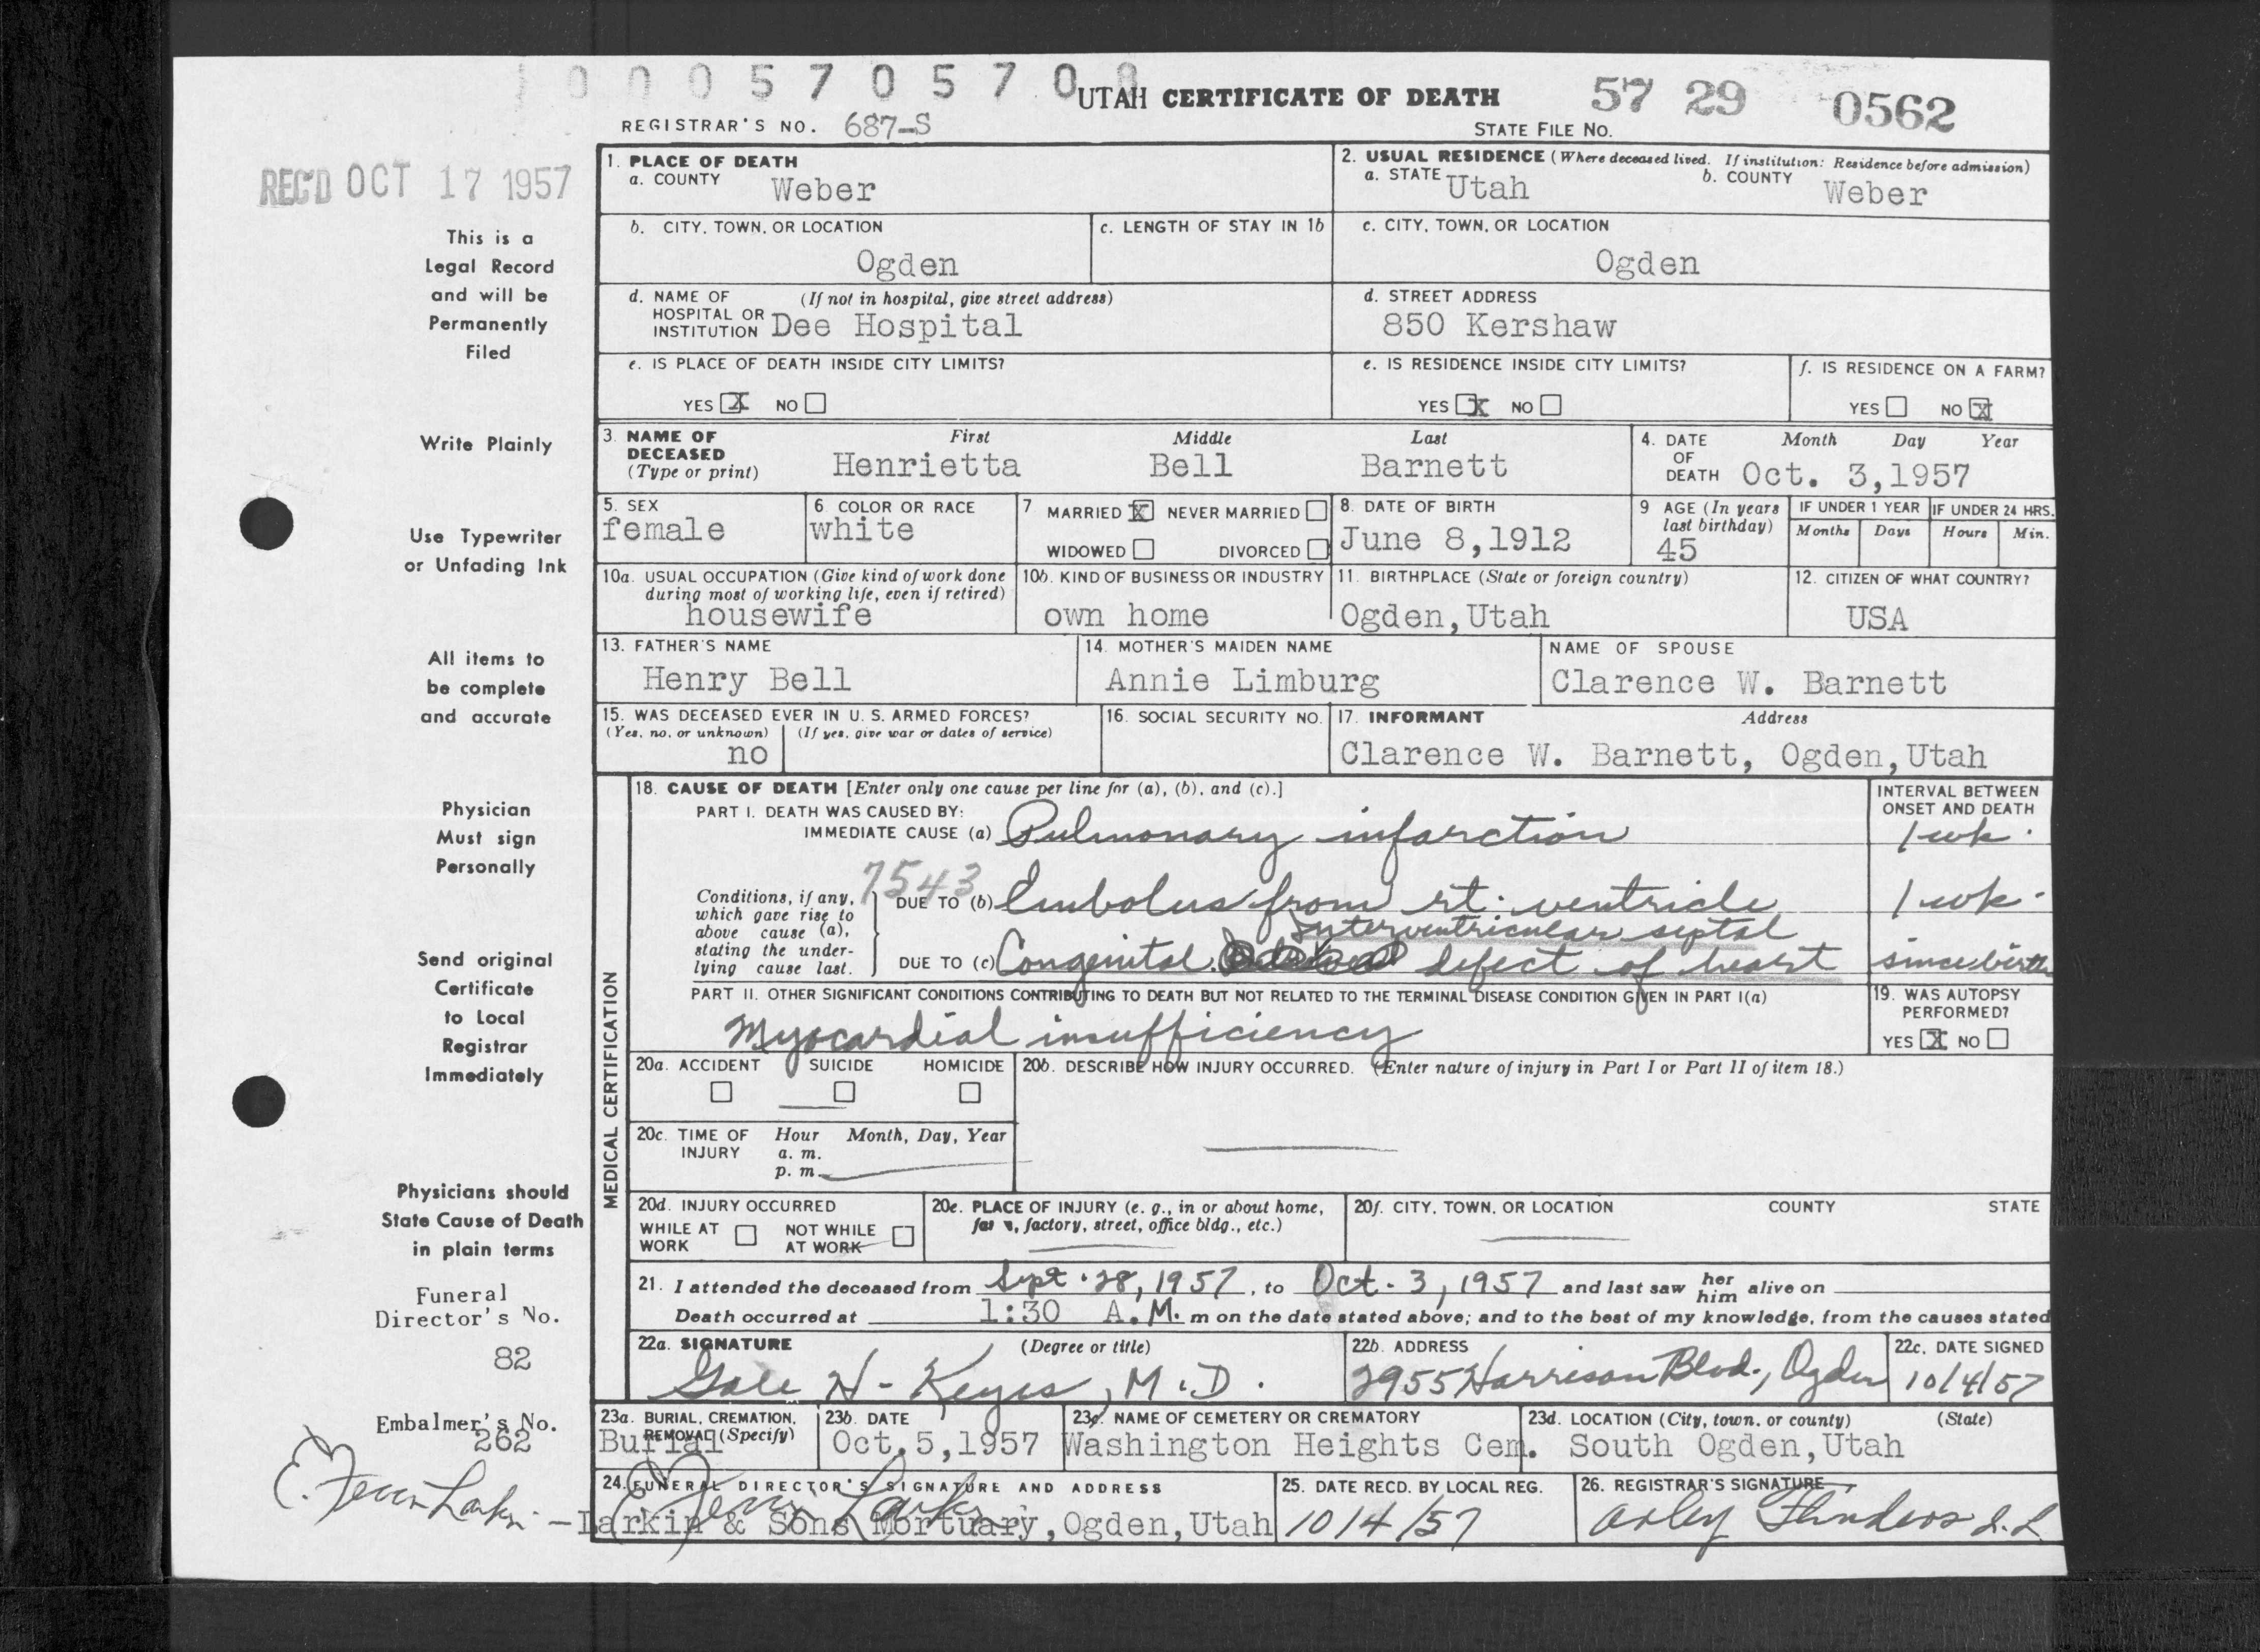 0 0 0 5 7 0 5 7 0 8
UTAH CERTIFICATE OF DEATH
57 29 0562
REGISTRAR'S NO. 687-S
STATE FILE NO.
REC'D OCT 17 1957
This is a
Legal Record
and will be
Permanently
Filed
Write Plainly
Use Typewriter
or Unfading Ink
All items to
be complete
and accurate
Physician
Must sign
Personally
Send original
Certificate
to Local
Registrar
Immediately
Physicians should
State Cause of Death
in plain terms
Funeral
Director's No.
82
Embalmer's No.
262
1. PLACE OF DEATH
a. COUNTY Weber
2. USUAL RESIDENCE (Where deceased lived. If institution: Residence before admission)
a. STATE Utah b. COUNTY Weber
b. CITY, TOWN, OR LOCATION
Ogden
c. LENGTH OF STAY IN 1b
c. CITY, TOWN, OR LOCATION
Ogden
d. NAME OF (If not in hospital, give street address)
HOSPITAL OR
INSTITUTION Dee Hospital
d. STREET ADDRESS
850 Kershaw
e. IS PLACE OF DEATH INSIDE CITY LIMITS?
YES X NO
e. IS RESIDENCE INSIDE CITY LIMITS?
YES X NO
f. IS RESIDENCE ON A FARM?
YES NO X
3. NAME OF DECEASED (Type or print)
First Middle Last
Henrietta Bell Barnett
4. DATE OF DEATH Month Day Year
Oct. 3,1957
5. SEX
female
6 COLOR OR RACE
white
7 MARRIED X NEVER MARRIED
WIDOWED DIVORCED
8. DATE OF BIRTH
June 8,1912
9 AGE (In years last birthday)
45
IF UNDER 1 YEAR
Months Days
IF UNDER 24 HRS.
Hours Min.
10a. USUAL OCCUPATION (Give kind of work done
during most of working life, even if retired)
housewife
10b. KIND OF BUSINESS OR INDUSTRY
own home
11. BIRTHPLACE (State or foreign country)
Ogden,Utah
12. CITIZEN OF WHAT COUNTRY?
USA
13. FATHER'S NAME
Henry Bell
14. MOTHER'S MAIDEN NAME
Annie Limburg
NAME OF SPOUSE
Clarence W. Barnett
15. WAS DECEASED EVER IN U. S. ARMED FORCES?
(Yes, no, or unknown) (If yes, give war or dates of service)
no
16. SOCIAL SECURITY NO.
17. INFORMANT Address
Clarence W. Barnett, Ogden,Utah
MEDICAL CERTIFICATION
18. CAUSE OF DEATH [Enter only one cause per line for (a), (b), and (c).]
PART I. DEATH WAS CAUSED BY:
IMMEDIATE CAUSE (a) Pulmonary infarction
INTERVAL BETWEEN
ONSET AND DEATH
1 wk.
7543
Conditions, if any,
which gave rise to
above cause (a),
stating the under-
lying cause last.
DUE TO (b) Embolus from rt. ventricle
1 wk.
interventricular septal
DUE TO (c) Congenital defect of heart
since birth
PART II. OTHER SIGNIFICANT CONDITIONS CONTRIBUTING TO DEATH BUT NOT RELATED TO THE TERMINAL DISEASE CONDITION GIVEN IN PART I(a)
Myocardial insufficiency
19. WAS AUTOPSY
PERFORMED?
YES X NO
20a. ACCIDENT SUICIDE HOMICIDE
20b. DESCRIBE HOW INJURY OCCURRED. (Enter nature of injury in Part I or Part II of item 18.)
20c. TIME OF INJURY Hour Month, Day, Year
a. m.
p. m.
20d. INJURY OCCURRED
WHILE AT WORK NOT WHILE AT WORK
20e. PLACE OF INJURY (e. g., in or about home,
factory, street, office bldg., etc.)
20f. CITY, TOWN, OR LOCATION COUNTY STATE
21. I attended the deceased from Sept. 28, 1957, to Oct. 3, 1957 and last saw her him alive on
Death occurred at 1:30 A.M. m on the date stated above; and to the best of my knowledge, from the causes stated
22a. SIGNATURE (Degree or title)
Gale H. Keyes, M.D.
22b. ADDRESS
2955 Harrison Blvd., Ogden
22c. DATE SIGNED
10/4/57
23a. BURIAL, CREMATION,
REMOVAL (Specify)
Burial
23b. DATE
Oct.5,1957
23c. NAME OF CEMETERY OR CREMATORY
Washington Heights Cem.
23d. LOCATION (City, town, or county) (State)
South Ogden,Utah
24. FUNERAL DIRECTOR'S SIGNATURE AND ADDRESS
Larkin & Sons Mortuary,Ogden,Utah
25. DATE RECD. BY LOCAL REG.
10/4/57
26. REGISTRAR'S SIGNATURE